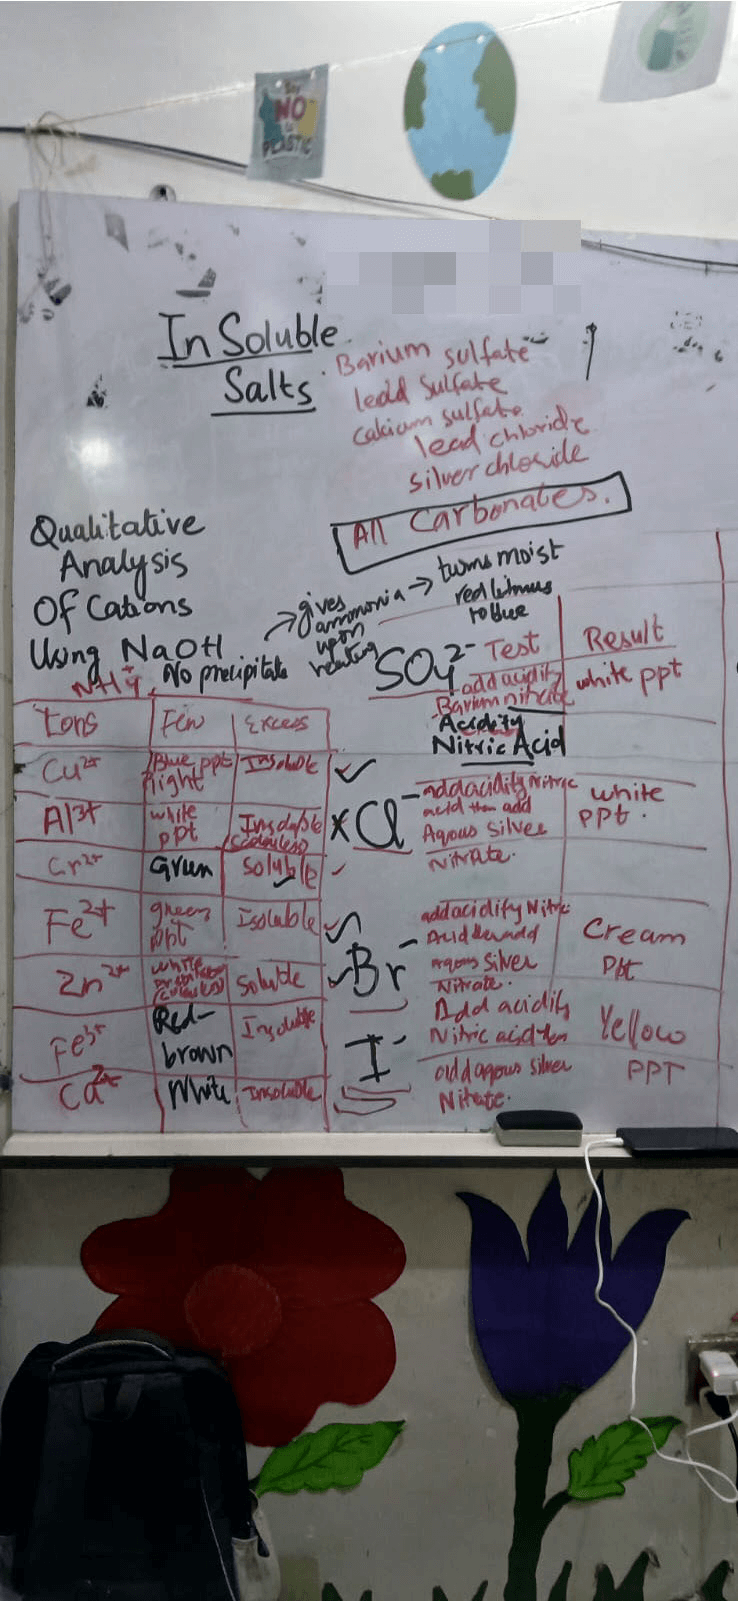 Say
NO
to
PLASTIC
InSoluble
Salts
Barium sulfate
lead Sulfate
calcium sulfate
lead chloride
silver chloride
All Carbonates.
Qualitative
Analysis
Of Cations
Using NaOH
NH4+ No precipitate
→ gives ammonia upon heating → turns moist red litmus to blue
Ions Few Excess
Cu2+ Blue ppt light Insoluble ✓
Al3+ white ppt Insoluble (colourless) ×
Cr2+ Green soluble ✓
Fe2+ green ppt Isoluble ✓
Zn2+ white precipitate (colourless) Soluble ✓
Fe3+ Red-brown Insoluble
Ca2+ White Insoluble
Test Result
SO42- add acidify Barium nitrate white ppt
Acidify
Nitric Acid
Cl- add acidify Nitric acid then add Aqous silver Nitrate. white ppt.
Br- add acidify Nitric Acid then add Aqous Silver Nitrate. Cream Ppt
I- Add acidify Nitric acid then add aqous silver Nitrate. Yellow PPT